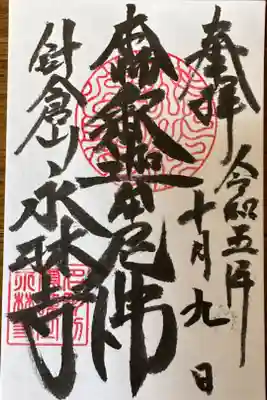 奉拝
令和五年
十月九日
本尊釈迦牟尼佛
針倉山永林寺